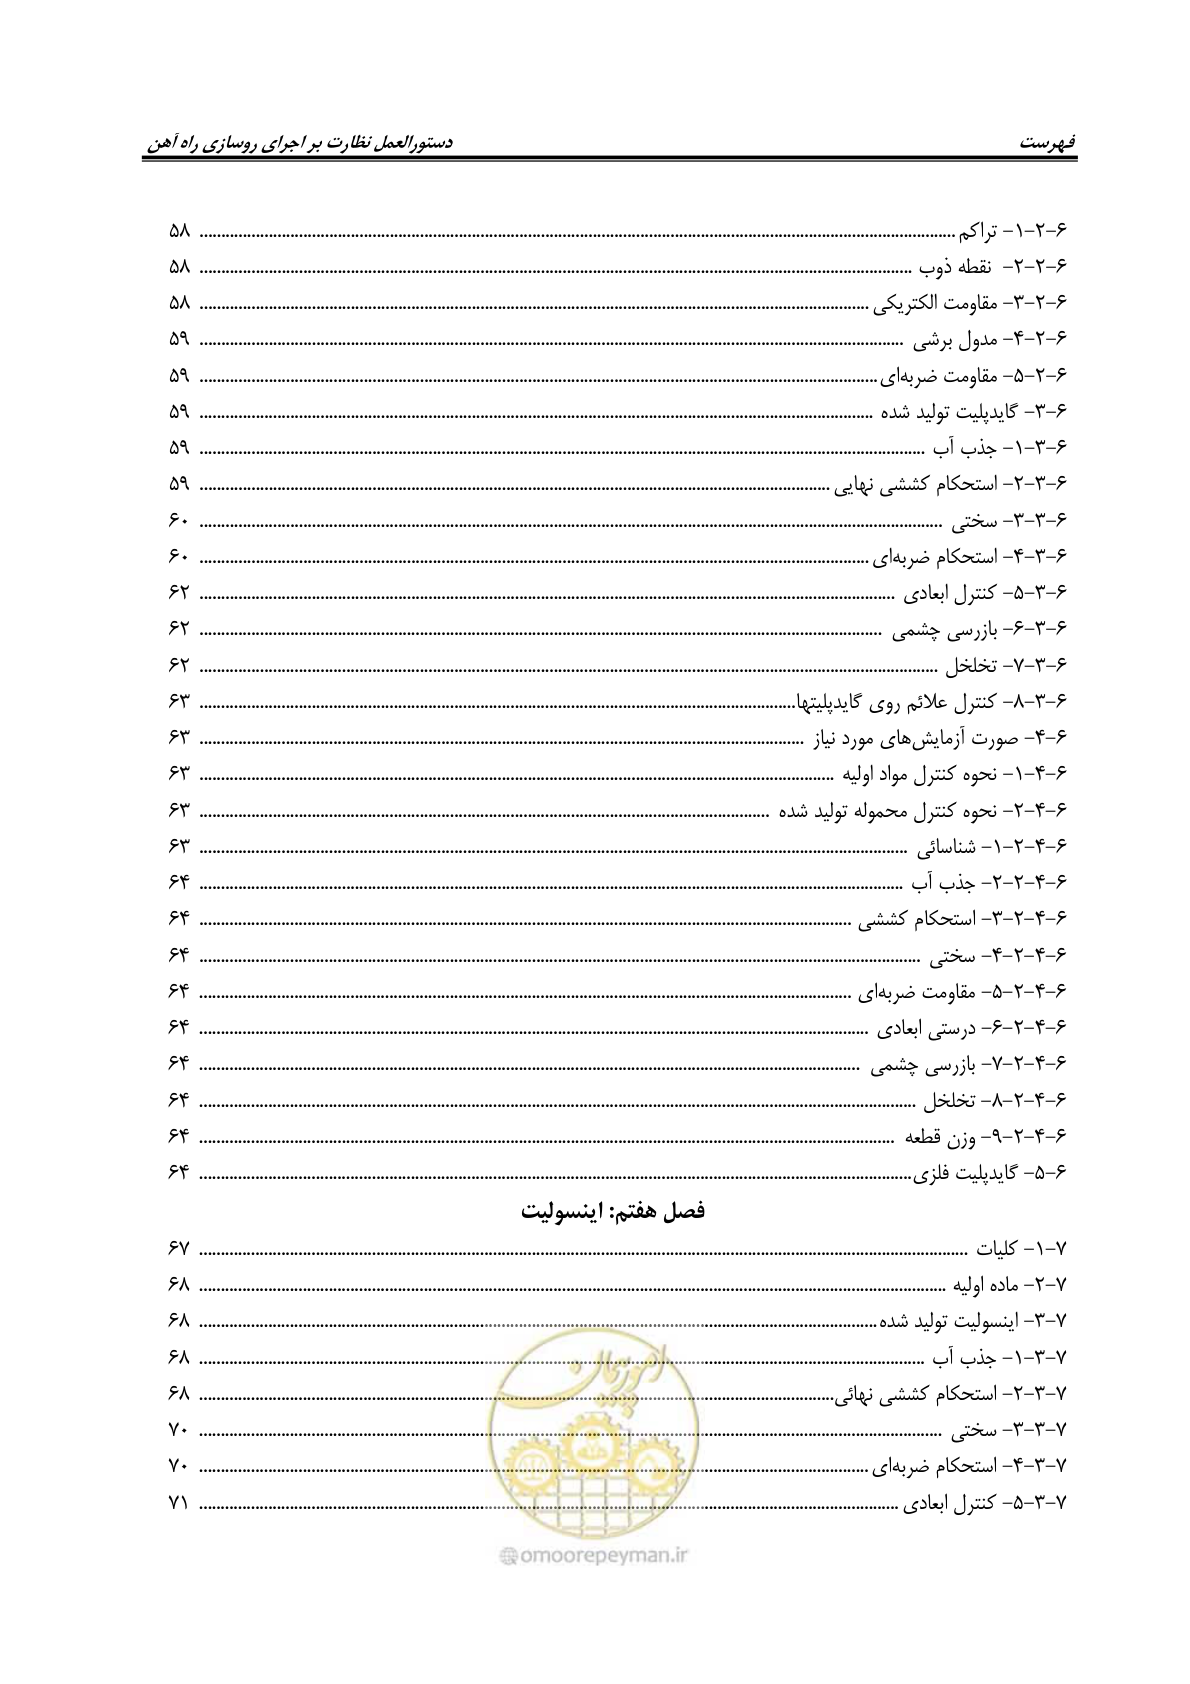 فهرست دستورالعمل نظارت بر اجرای روسازی راه آهن
۶-۲-۱- تراکم ۵۸
۶-۲-۲- نقطه ذوب ۵۸
۶-۲-۳- مقاومت الکتریکی ۵۸
۶-۲-۴- مدول برشی ۵۹
۶-۲-۵- مقاومت ضربه‌ای ۵۹
۶-۳- گایدپلیت تولید شده ۵۹
۶-۳-۱- جذب آب ۵۹
۶-۳-۲- استحکام کششی نهایی ۵۹
۶-۳-۳- سختی ۶۰
۶-۳-۴- استحکام ضربه‌ای ۶۰
۶-۳-۵- کنترل ابعادی ۶۲
۶-۳-۶- بازرسی چشمی ۶۲
۶-۳-۷- تخلخل ۶۲
۶-۳-۸- کنترل علائم روی گایدپلیتها ۶۳
۶-۴- صورت آزمایش‌های مورد نیاز ۶۳
۶-۴-۱- نحوه کنترل مواد اولیه ۶۳
۶-۴-۲- نحوه کنترل محموله تولید شده ۶۳
۶-۴-۲-۱- شناسائی ۶۳
۶-۴-۲-۲- جذب آب ۶۴
۶-۴-۲-۳- استحکام کششی ۶۴
۶-۴-۲-۴- سختی ۶۴
۶-۴-۲-۵- مقاومت ضربه‌ای ۶۴
۶-۴-۲-۶- درستی ابعادی ۶۴
۶-۴-۲-۷- بازرسی چشمی ۶۴
۶-۴-۲-۸- تخلخل ۶۴
۶-۴-۲-۹- وزن قطعه ۶۴
۶-۵- گایدپلیت فلزی ۶۴
فصل هفتم: اینسولیت
۷-۱- کلیات ۶۷
۷-۲- ماده اولیه ۶۸
۷-۳- اینسولیت تولید شده ۶۸
۷-۳-۱- جذب آب ۶۸
۷-۳-۲- استحکام کششی نهائی ۶۸
۷-۳-۳- سختی ۷۰
۷-۳-۴- استحکام ضربه‌ای ۷۰
۷-۳-۵- کنترل ابعادی ۷۱
امور پیمان
@omoorepeyman.ir